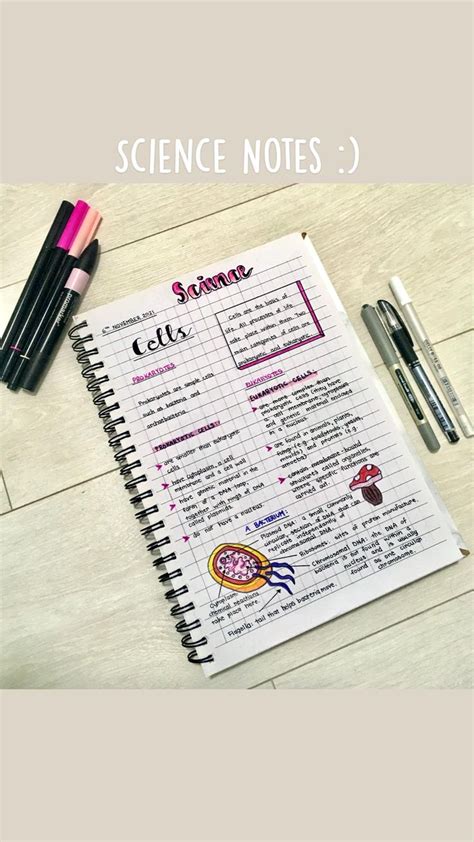 SCIENCE NOTES :)
Science
6TH NOVEMBER 2021
Cells
Cells are the basics of
life. All processes of life
take place within them. Two
main categories of cells are
prokaryotic and eukaryotic.
PROKARYOTES
Prokaryotes are simple cells
such as bacteria and
archaebacteria.
PROKARYOTIC CELLS:
are smaller than eukaryotic
cells.
have cytoplasm, a cell
membrane and a cell wall
have genetic material in the
form of a DNA loop,
together with rings of DNA
called plasmids.
do not have a nucleus.
EUKARYOTES
EUKARYOTIC CELLS:
are more complex than
prokaryotic cells (they have
a cell membrane, cytoplasm
and genetic material enclosed
in a nucleus.
are found in animals, plants,
fungi (e.g. toadstools, yeasts,
moulds) and protists (e.g.
amoeba)
contain membrane-bound
structures called organelles,
where specific functions are
carried out.
A BACTERIUM:
Plasmid DNA: a small, commonly
circular, section of DNA that can
replicate independently of
chromosomal DNA.
Ribosomes: sites of protein manufacture.
Chromosomal DNA: the DNA of
bacteria is not found within a
nucleus and is usually
found as one circular
chromosome.
Cytoplasm:
chemical reactions
take place here.
Flagella: tail that helps bacteria move.